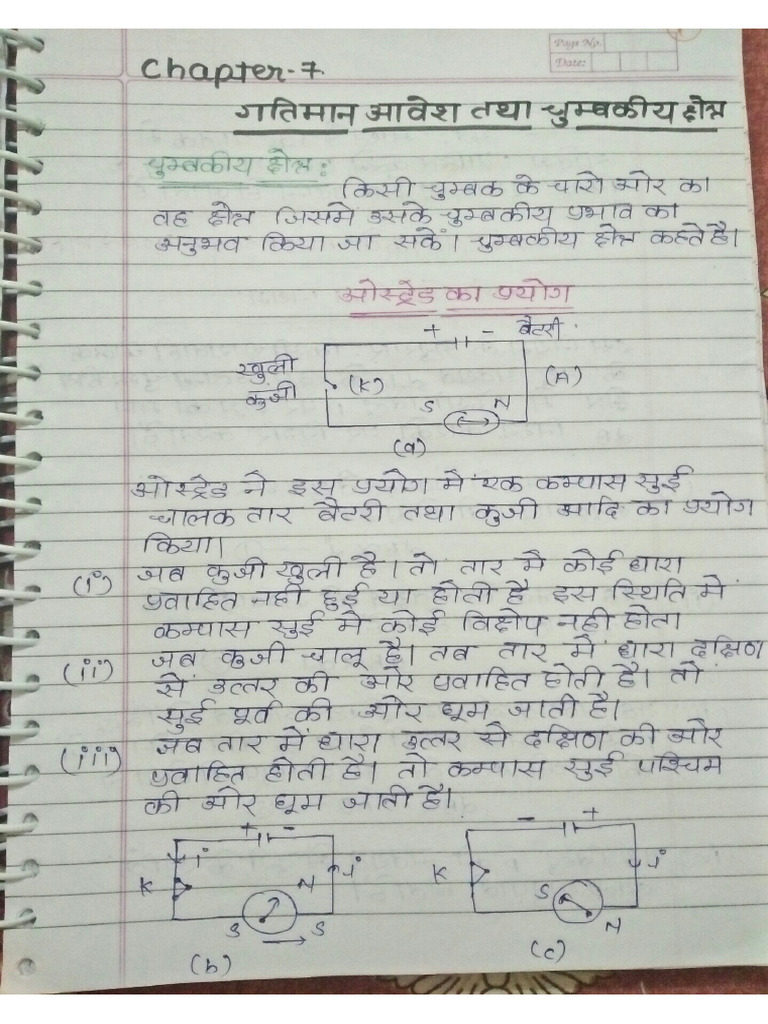 Page No.
Date:
Chapter-7
गतिमान आवेश तथा चुम्बकीय क्षेत्र
चुम्बकीय क्षेत्र:
किसी चुम्बक के चारो ओर का
वह क्षेत्र जिसमे उसके चुम्बकीय प्रभाव का
अनुभव किया जा सकें। चुम्बकीय क्षेत्र कहते है।
ओस्ट्रेड का प्रयोग
+ - बैटरी
खुली (K) (A)
कुंजी
S N
(a)
ओस्ट्रेड ने इस प्रयोग में एक कम्पास सुई
चालक तार बैटरी तथा कुजी आदि का प्रयोग
किया।
(i) जब कुजी खुली है। तो तार मे कोई धारा
प्रवाहित नही हुई या होती है इस स्थिति में
कम्पास सुई मे कोई विक्षेप नही होता
(ii) जब कुजी चालू है। तब तार में धारा दक्षिण
से उत्तर की ओर प्रवाहित होती है। तो
सुई पूर्व की ओर घूम जाती है।
(iii) जब तार में धारा उत्तर से दक्षिण की ओर
प्रवाहित होती है। तो कम्पास सुई पश्चिम
की ओर घूम जाती है।
+ - - +
i i i
K N K S
S S N
(b) (c)